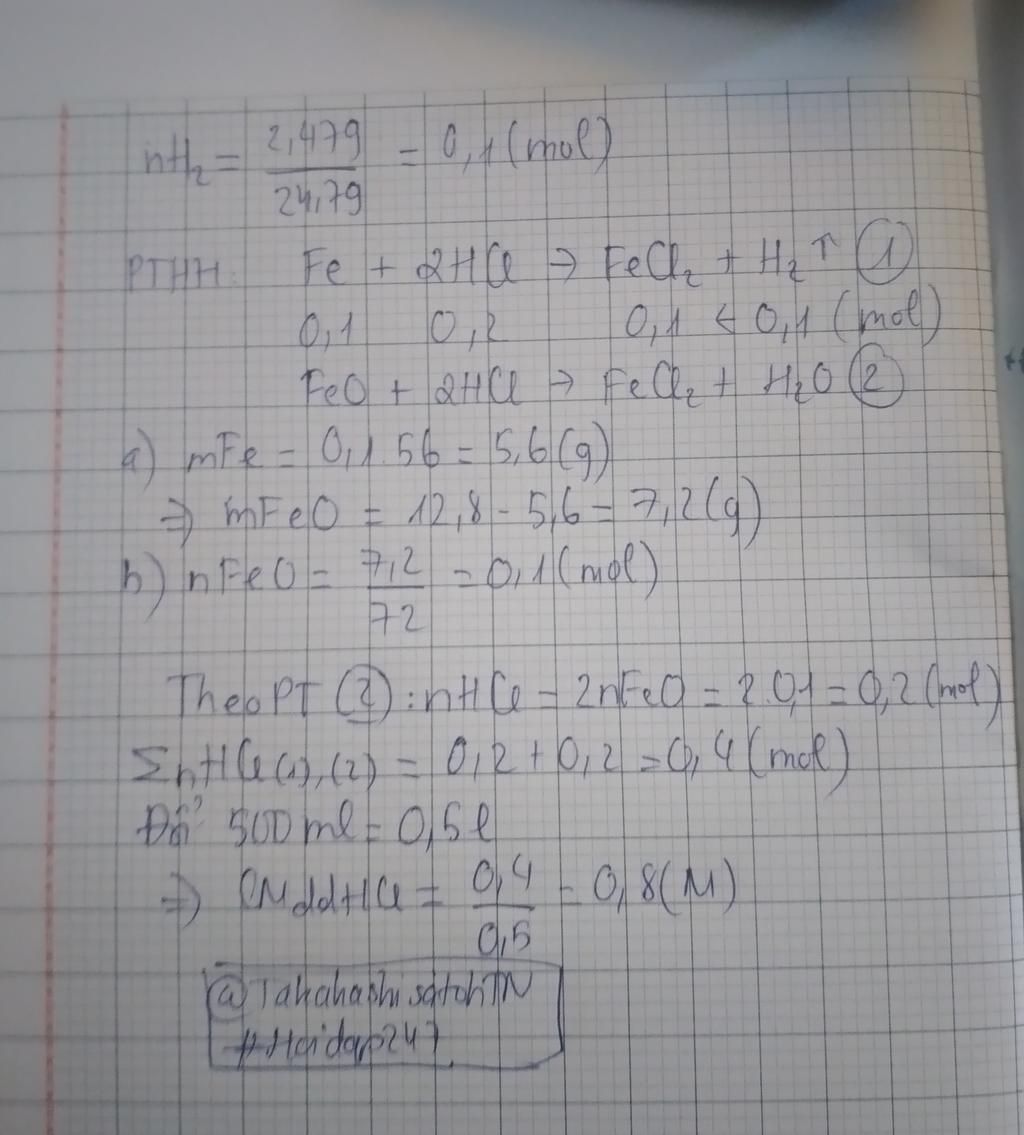 nH₂ = 2,479 / 24,79 = 0,1 (mol)
PTHH: Fe + 2HCl → FeCl₂ + H₂ ↑ (1)
0,1 0,2 0,1 < 0,1 (mol)
FeO + 2HCl → FeCl₂ + H₂O (2)
a) mFe = 0,1.56 = 5,6 (g)
⇒ mFeO = 12,8 - 5,6 = 7,2 (g)
b) nFeO = 7,2 / 72 = 0,1 (mol)
Theo PT (2): nHCl = 2nFeO = 2.0,1 = 0,2 (mol)
ΣnHCl (1),(2) = 0,2 + 0,2 = 0,4 (mol)
Đổi 500ml = 0,5l
⇒ CM ddHCl = 0,4 / 0,5 = 0,8 (M)
@TakahashisatohTN
#Hoidap247